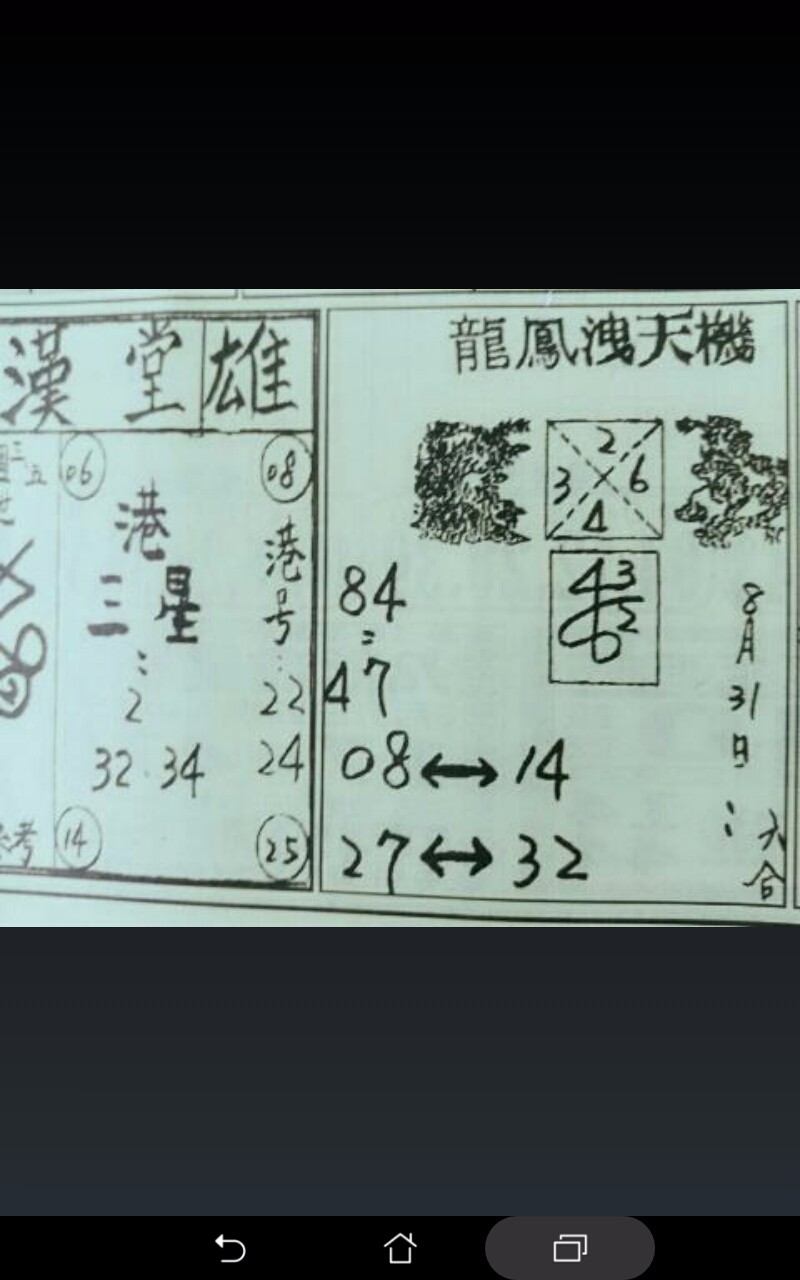 漢堂雄
三五
06
08
港
三星
:
2
32.34
港号:
22
24
14
25
考
龍鳳洩天機
2
3 6
4
84
=
47
08↔14
27↔32
43
2
8月31日:六合